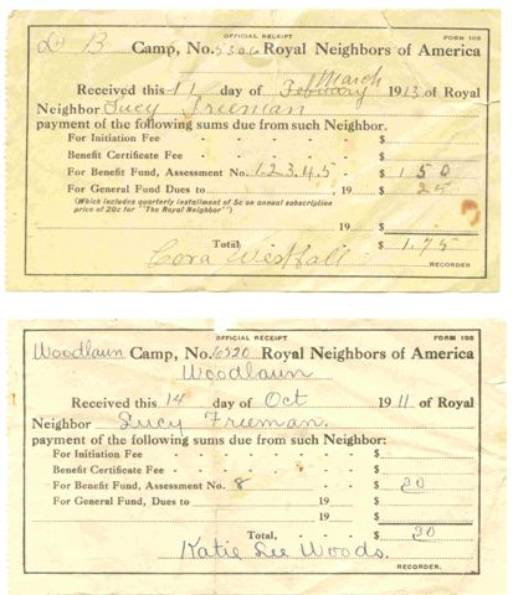 OFFICIAL RECEIPT FORM 108
B Camp, No. 5306 Royal Neighbors of America
March
Received this 11 day of February 1913 of Royal
Neighbor Lucy Freeman
payment of the following sums due from such Neighbor.
For Initiation Fee - - - - - - $
Benefit Certificate Fee - - - - - - $
For Benefit Fund, Assessment No. 1.2.3.4.5 - - $ 1 50
For General Fund Dues to 19 $ 25
(Which includes quarterly installment of 5c on annual subscription
price of 20c for "The Royal Neighbor")
19 $
Total $ 1.75
Cora Westfall
RECORDER
OFFICIAL RECEIPT FORM 108
Woodlaun Camp, No. 6520 Royal Neighbors of America
Woodlaun
Received this 14 day of Oct 1911 of Royal
Neighbor Lucy Freeman.
payment of the following sums due from such Neighbor:
For Initiation Fee - - - - - - $
Benefit Certificate Fee - - - - - - $
For Benefit Fund, Assessment No. 8 - - $ 20
For General Fund, Dues to 19 $
19 $
Total, - - - $ 20
Katie Lee Woods.
RECORDER.